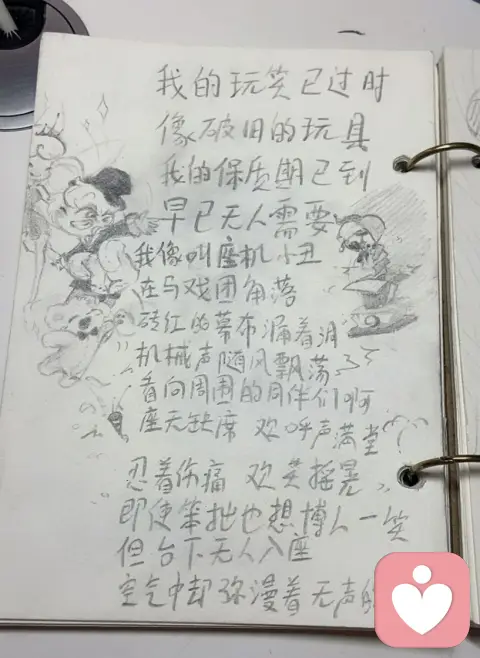 我的玩笑已过时
像破旧的玩具
我的保质期已到
早已无人需要
我像叫座机小丑
在马戏团角落
砖红的幕布漏着洞
机械声随风飘荡
看向周围的同伴们啊
座无缺席 欢呼声满堂
忍着伤痛 欢笑摇晃
即使笨拙也想博人一笑
但台下无人入座
空气中却弥漫着无声的